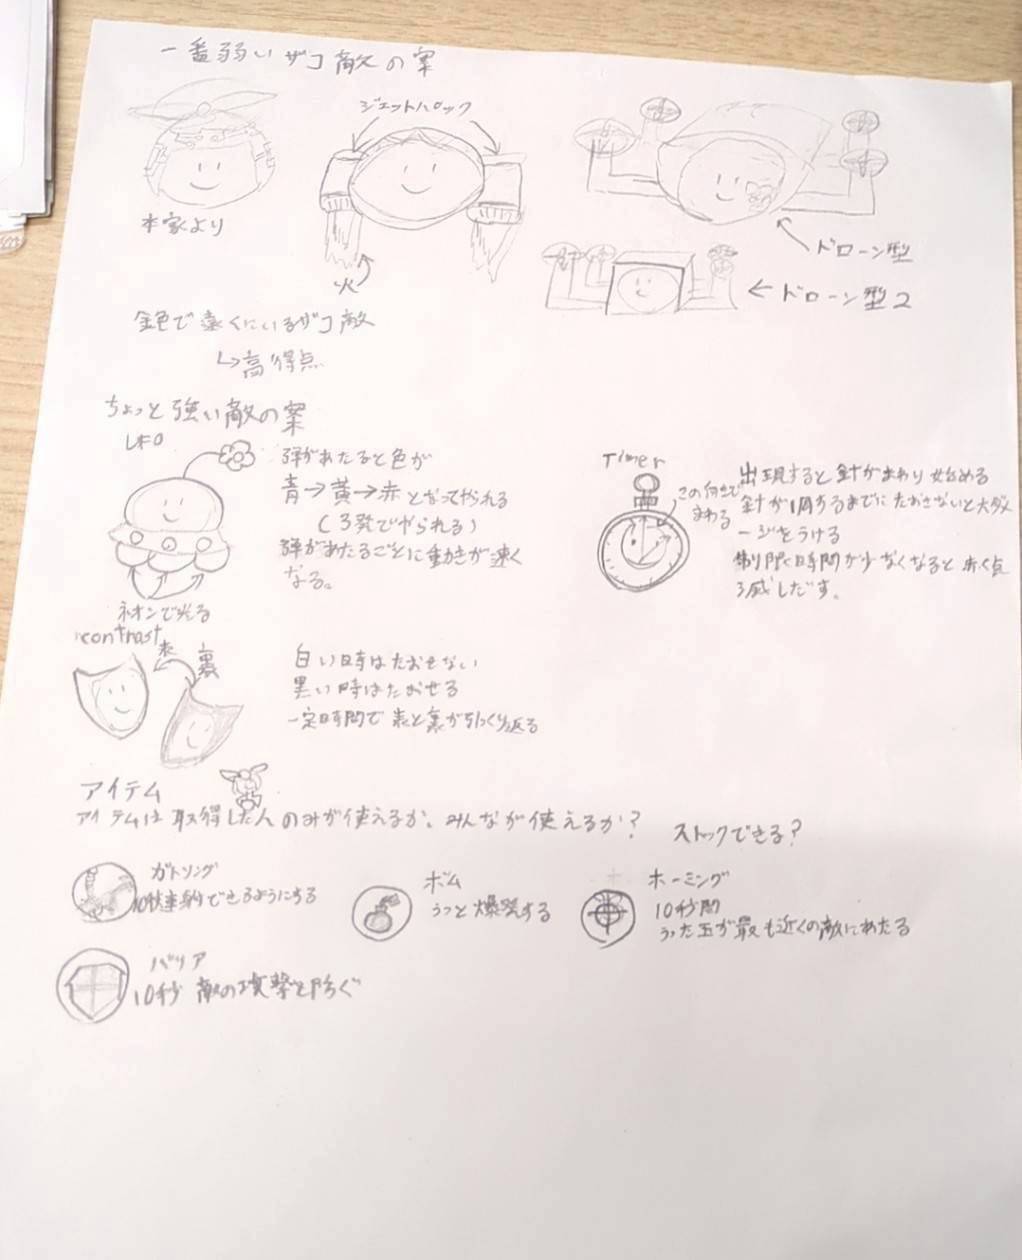 一番弱いザコ敵の案
ジェットパック
本家より
火
ドローン型
ドローン型2
金色で遠くにいるザコ敵
↳高得点
ちょっと強い敵の案
弾があたると色が
青→黄→赤となってやられる
(3発でやられる)
弾があたるごとに動きが速く
なる。
ネオンで光る
Timer
この向きで
まわる
出現すると針がまわり始める
針が1周するまでにたおさないと大ダメ
ージをうける
制限時間が少なくなると赤く点
滅しだす。
contrast
表
裏
白い時はたおせない
黒い時はたおせる
一定時間で表と裏が引っくり返る
アイテム
アイテムは取得した人のみが使えるか、みんなが使えるか?
ストックできる?
ガトリング
10秒連射できるようにする
ボム
うつと爆発する
ホーミング
10秒間
うった玉が最も近くの敵にあたる
バリア
10秒 敵の攻撃を防ぐ